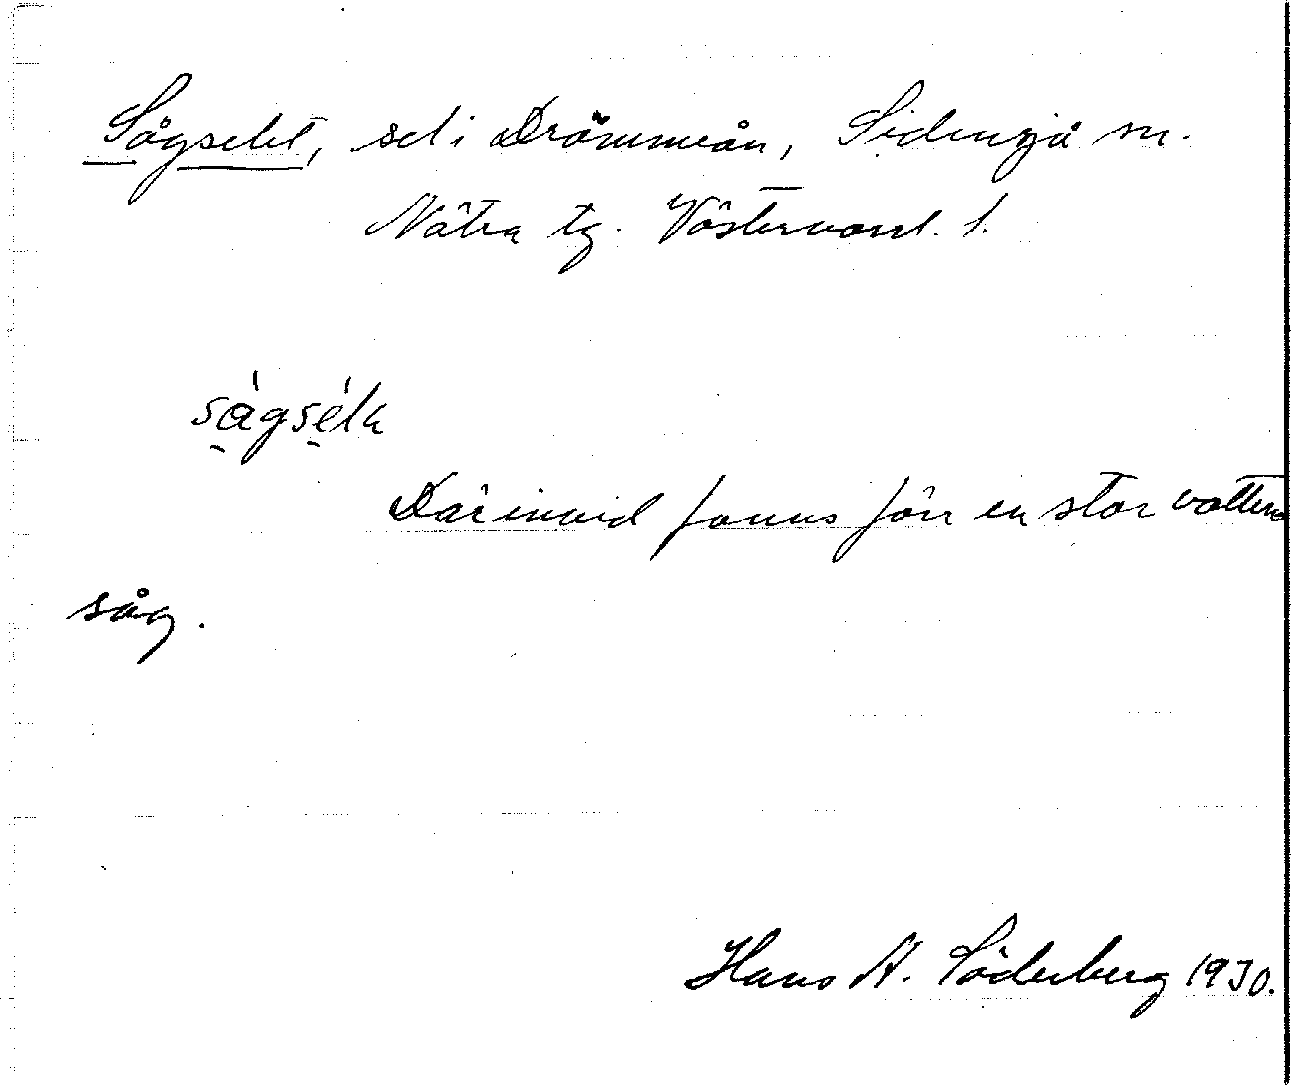 Sågselet, sel i Drömmeån, Sidensjö sn.
Nätra tg. Västernorrl. l.
ságsélɑ
Därinvid fanns förr en stor vatten
såg.
Hans A. Söderberg 1930.